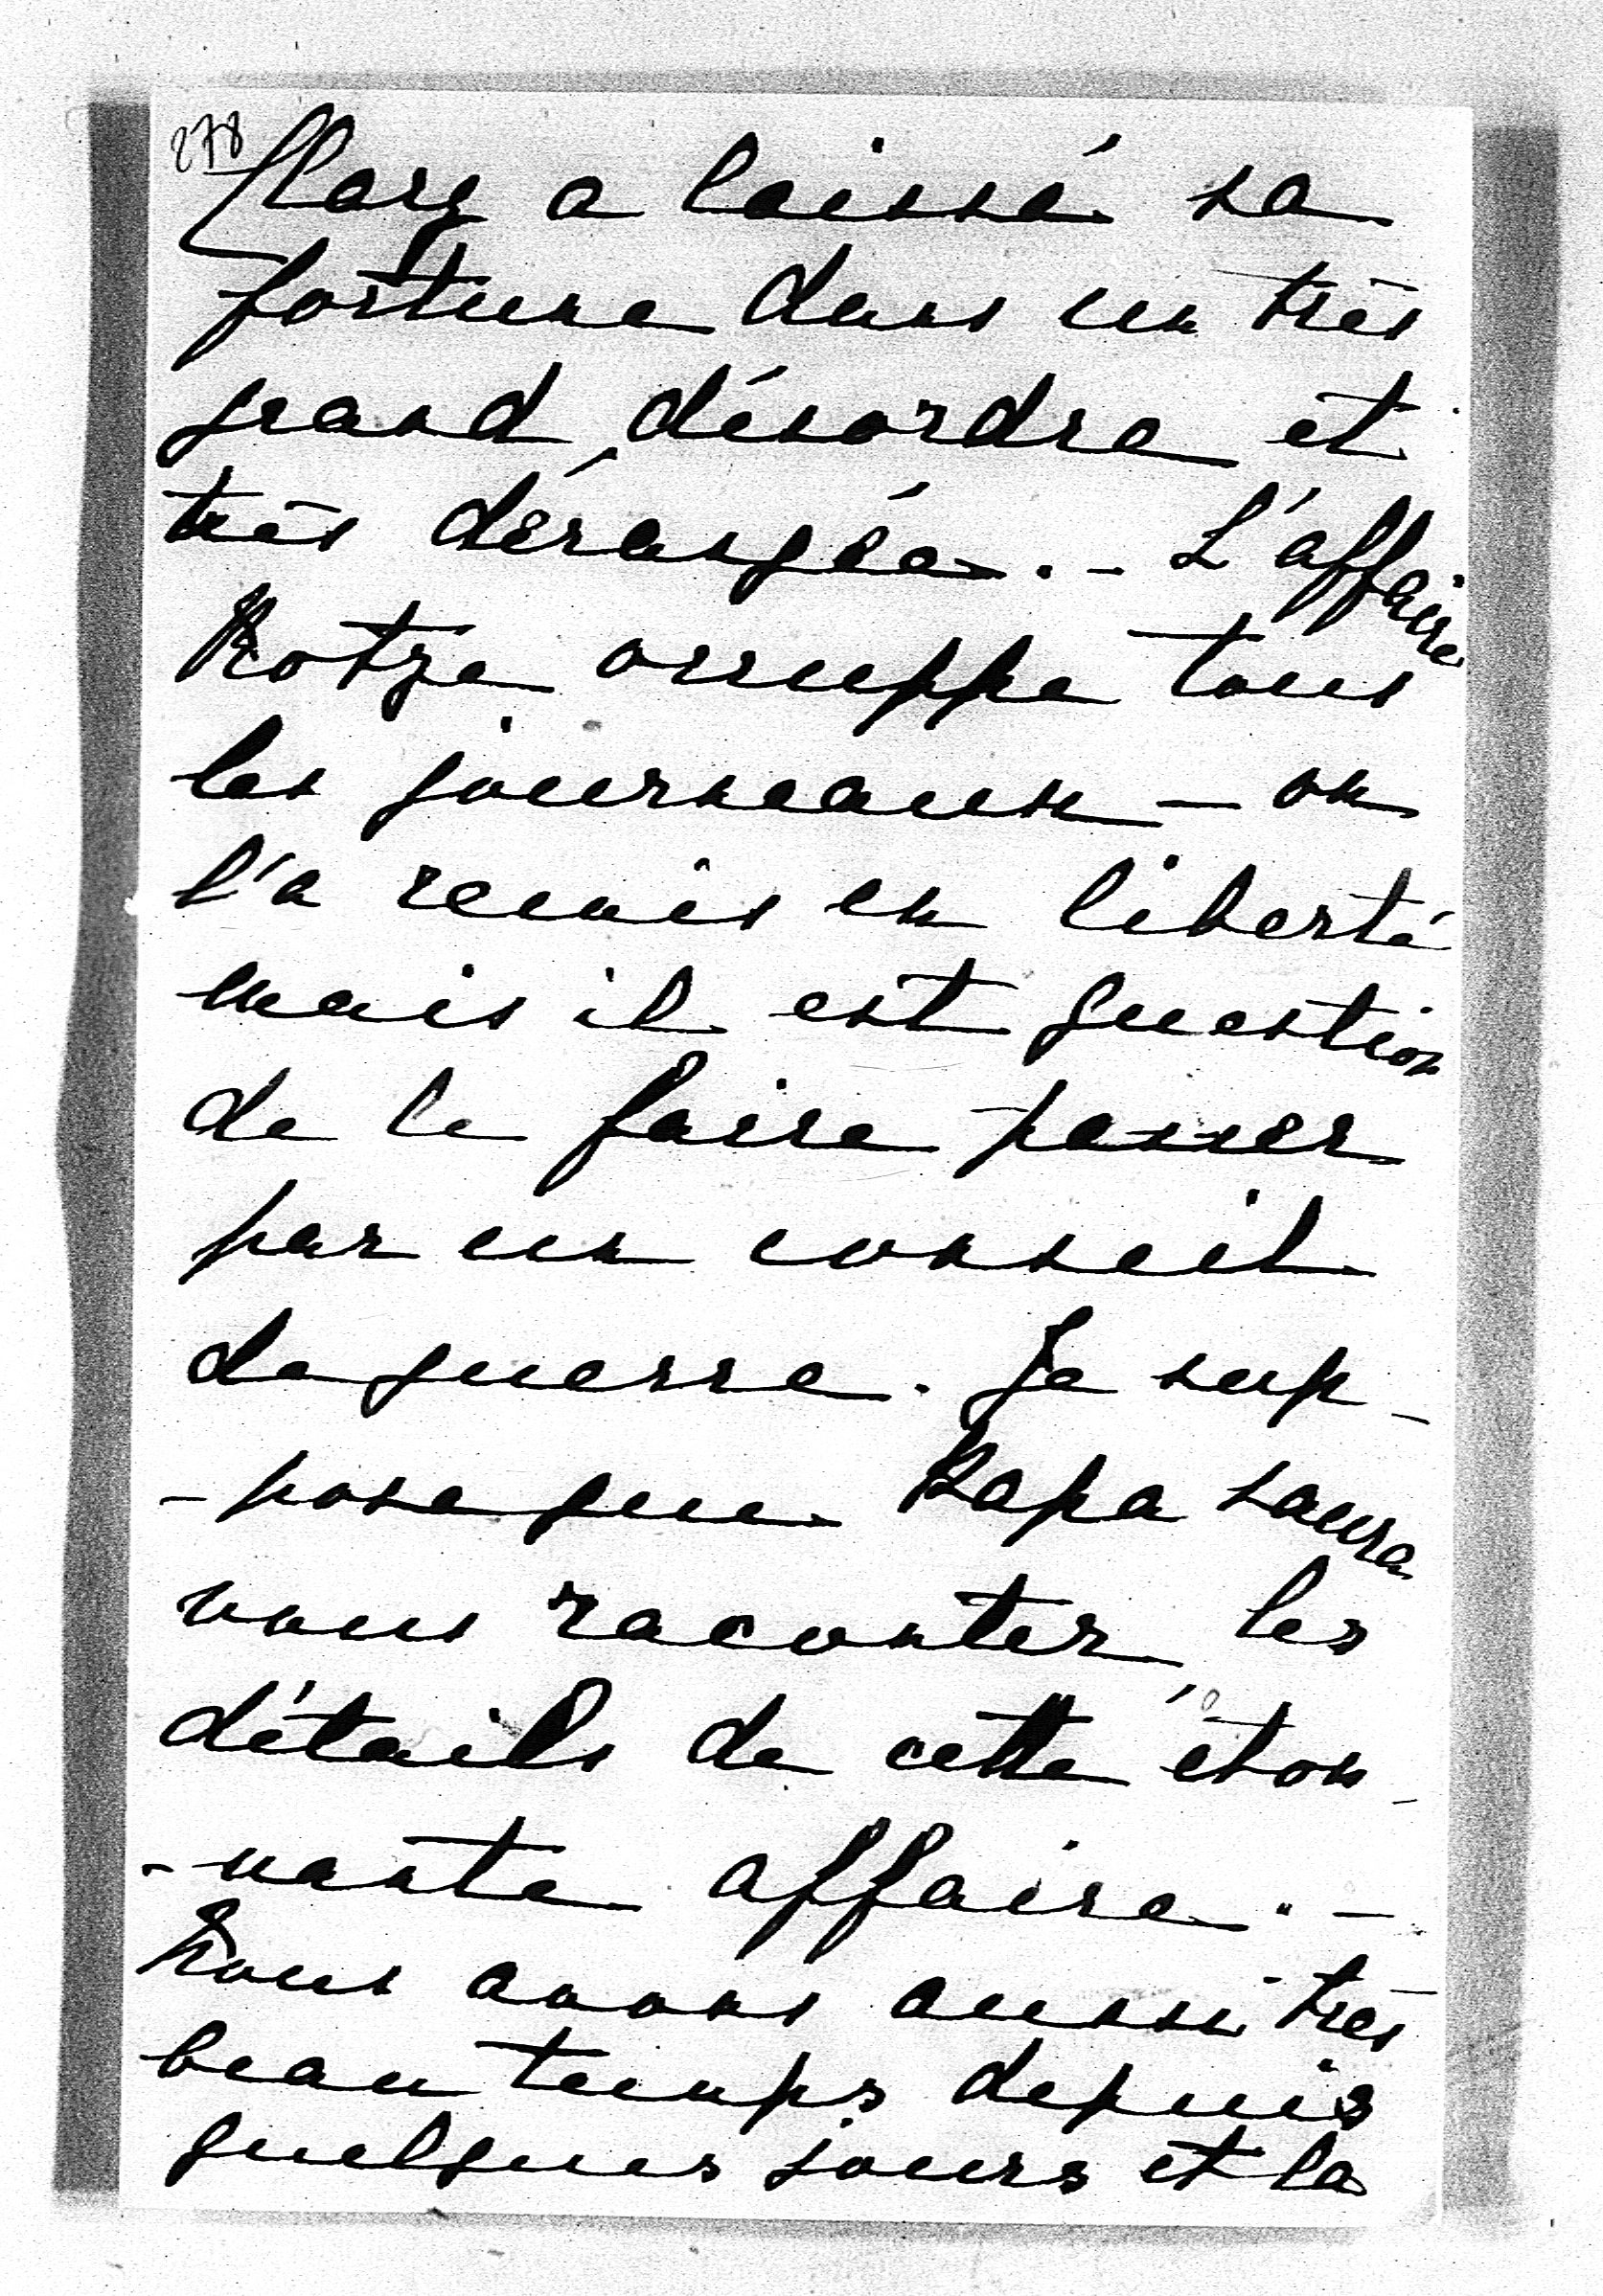 278
Hary a laissé sa
fortune dans un très
grand désordre et
très dérangée. - L'affaire
Kotze occuppe tous
les journeaux - on
l'a remis en liberté
mais il est question
de le faire passer
par un conseil
de guerre. Je sup-
-pose que Papa saura
vous raconter les
détails de cette éton-
-nante affaire. -
Nous avons aussi très
beau temps depuis
quelques jours et la